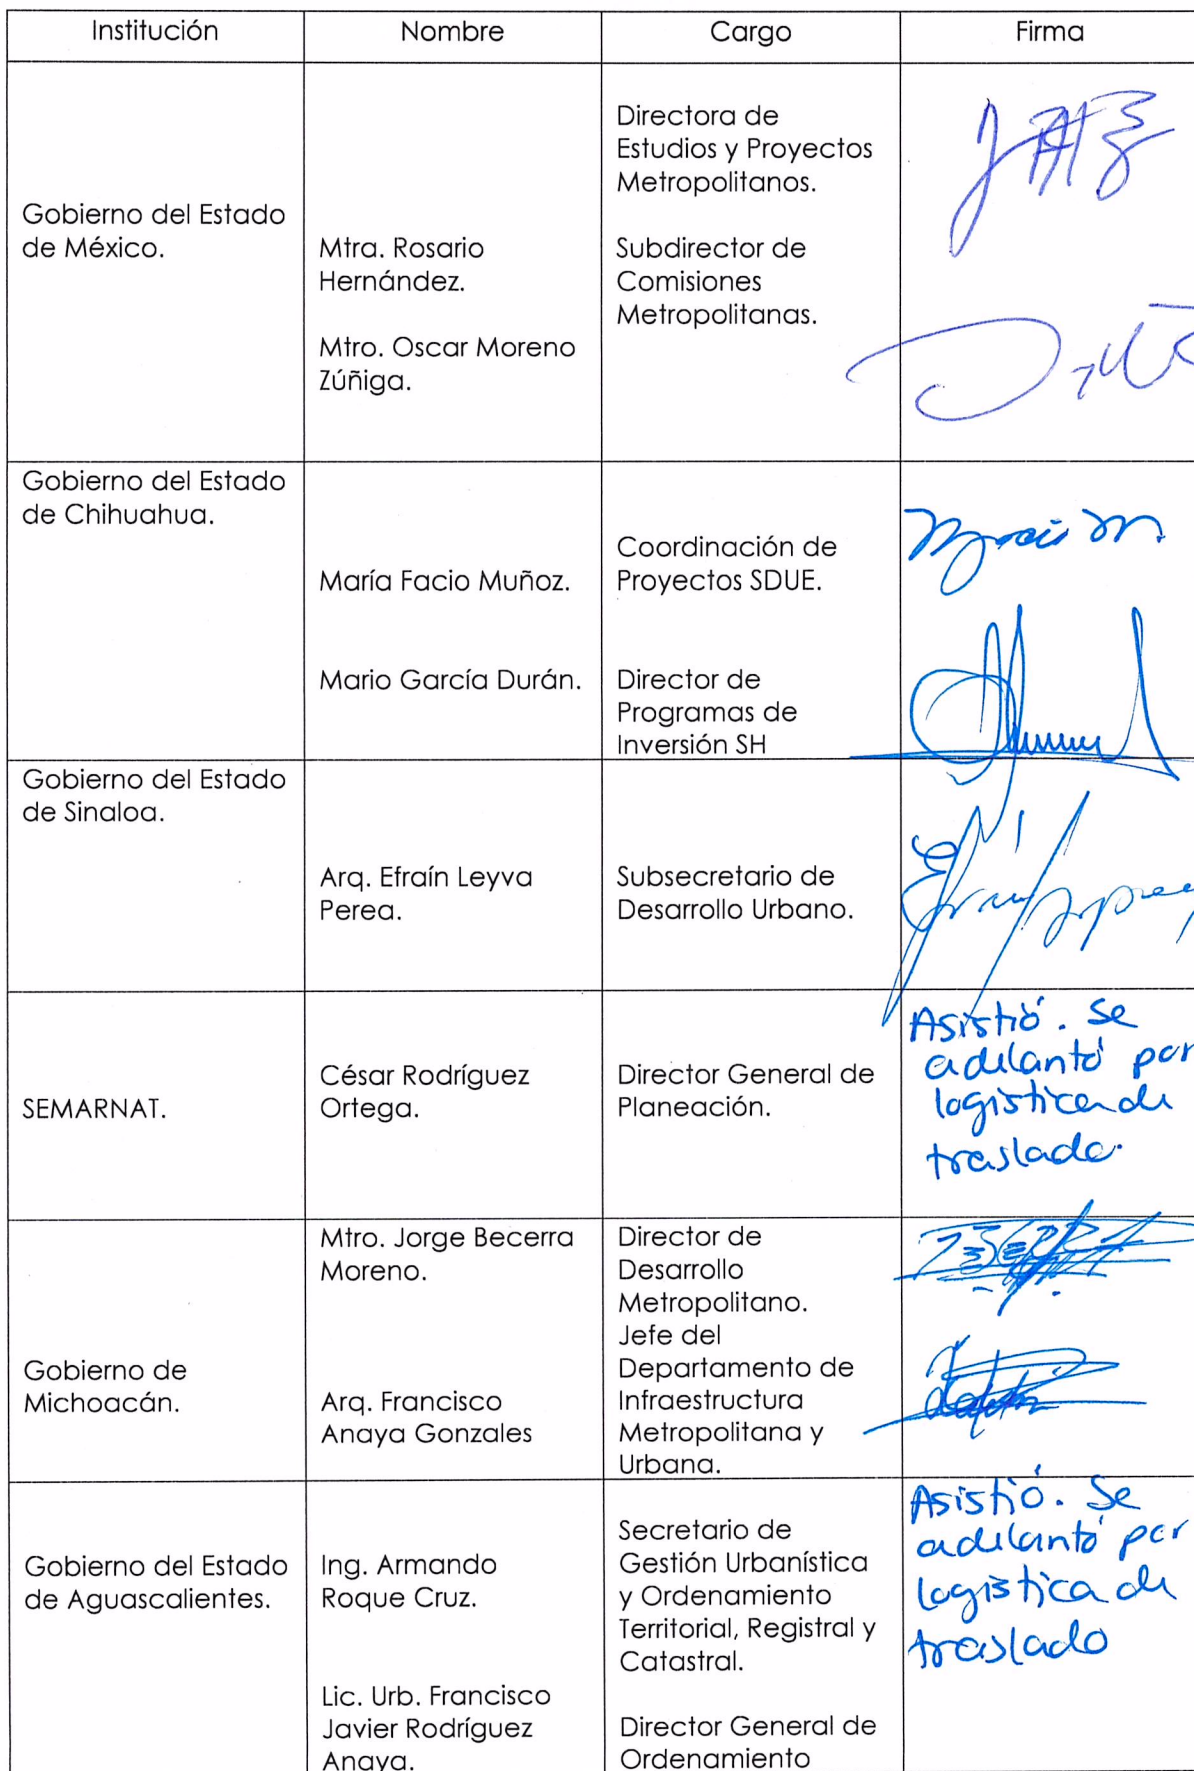 Institución
Nombre
Cargo
Firma
Gobierno del Estado
de México.
Mtra. Rosario
Hernández.
Mtro. Oscar Moreno
Zúñiga.
Directora de
Estudios y Proyectos
Metropolitanos.
Subdirector de
Comisiones
Metropolitanas.
Gobierno del Estado
de Chihuahua.
María Facio Muñoz.
Mario García Durán.
Coordinación de
Proyectos SDUE.
Director de
Programas de
Inversión SH
Gobierno del Estado
de Sinaloa.
Arq. Efraín Leyva
Perea.
Subsecretario de
Desarrollo Urbano.
SEMARNAT.
César Rodríguez
Ortega.
Director General de
Planeación.
Asistió. Se
adelantó por
logística de
traslado.
Gobierno de
Michoacán.
Mtro. Jorge Becerra
Moreno.
Arq. Francisco
Anaya Gonzales
Director de
Desarrollo
Metropolitano.
Jefe del
Departamento de
Infraestructura
Metropolitana y
Urbana.
Gobierno del Estado
de Aguascalientes.
Ing. Armando
Roque Cruz.
Lic. Urb. Francisco
Javier Rodríguez
Anaya.
Secretario de
Gestión Urbanística
y Ordenamiento
Territorial, Registral y
Catastral.
Director General de
Ordenamiento
Asistió. Se
adelantó por
logística de
traslado